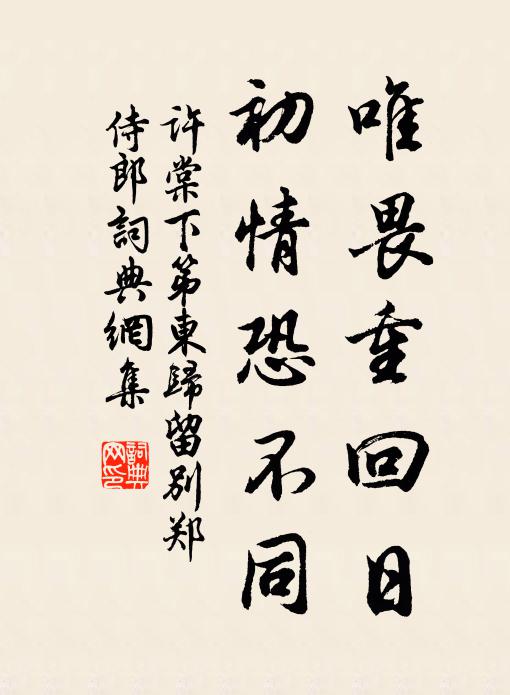 唯畏重回日
初情恐不同
许棠下第東歸留別郑
侍郎詞典網集
詞典网印